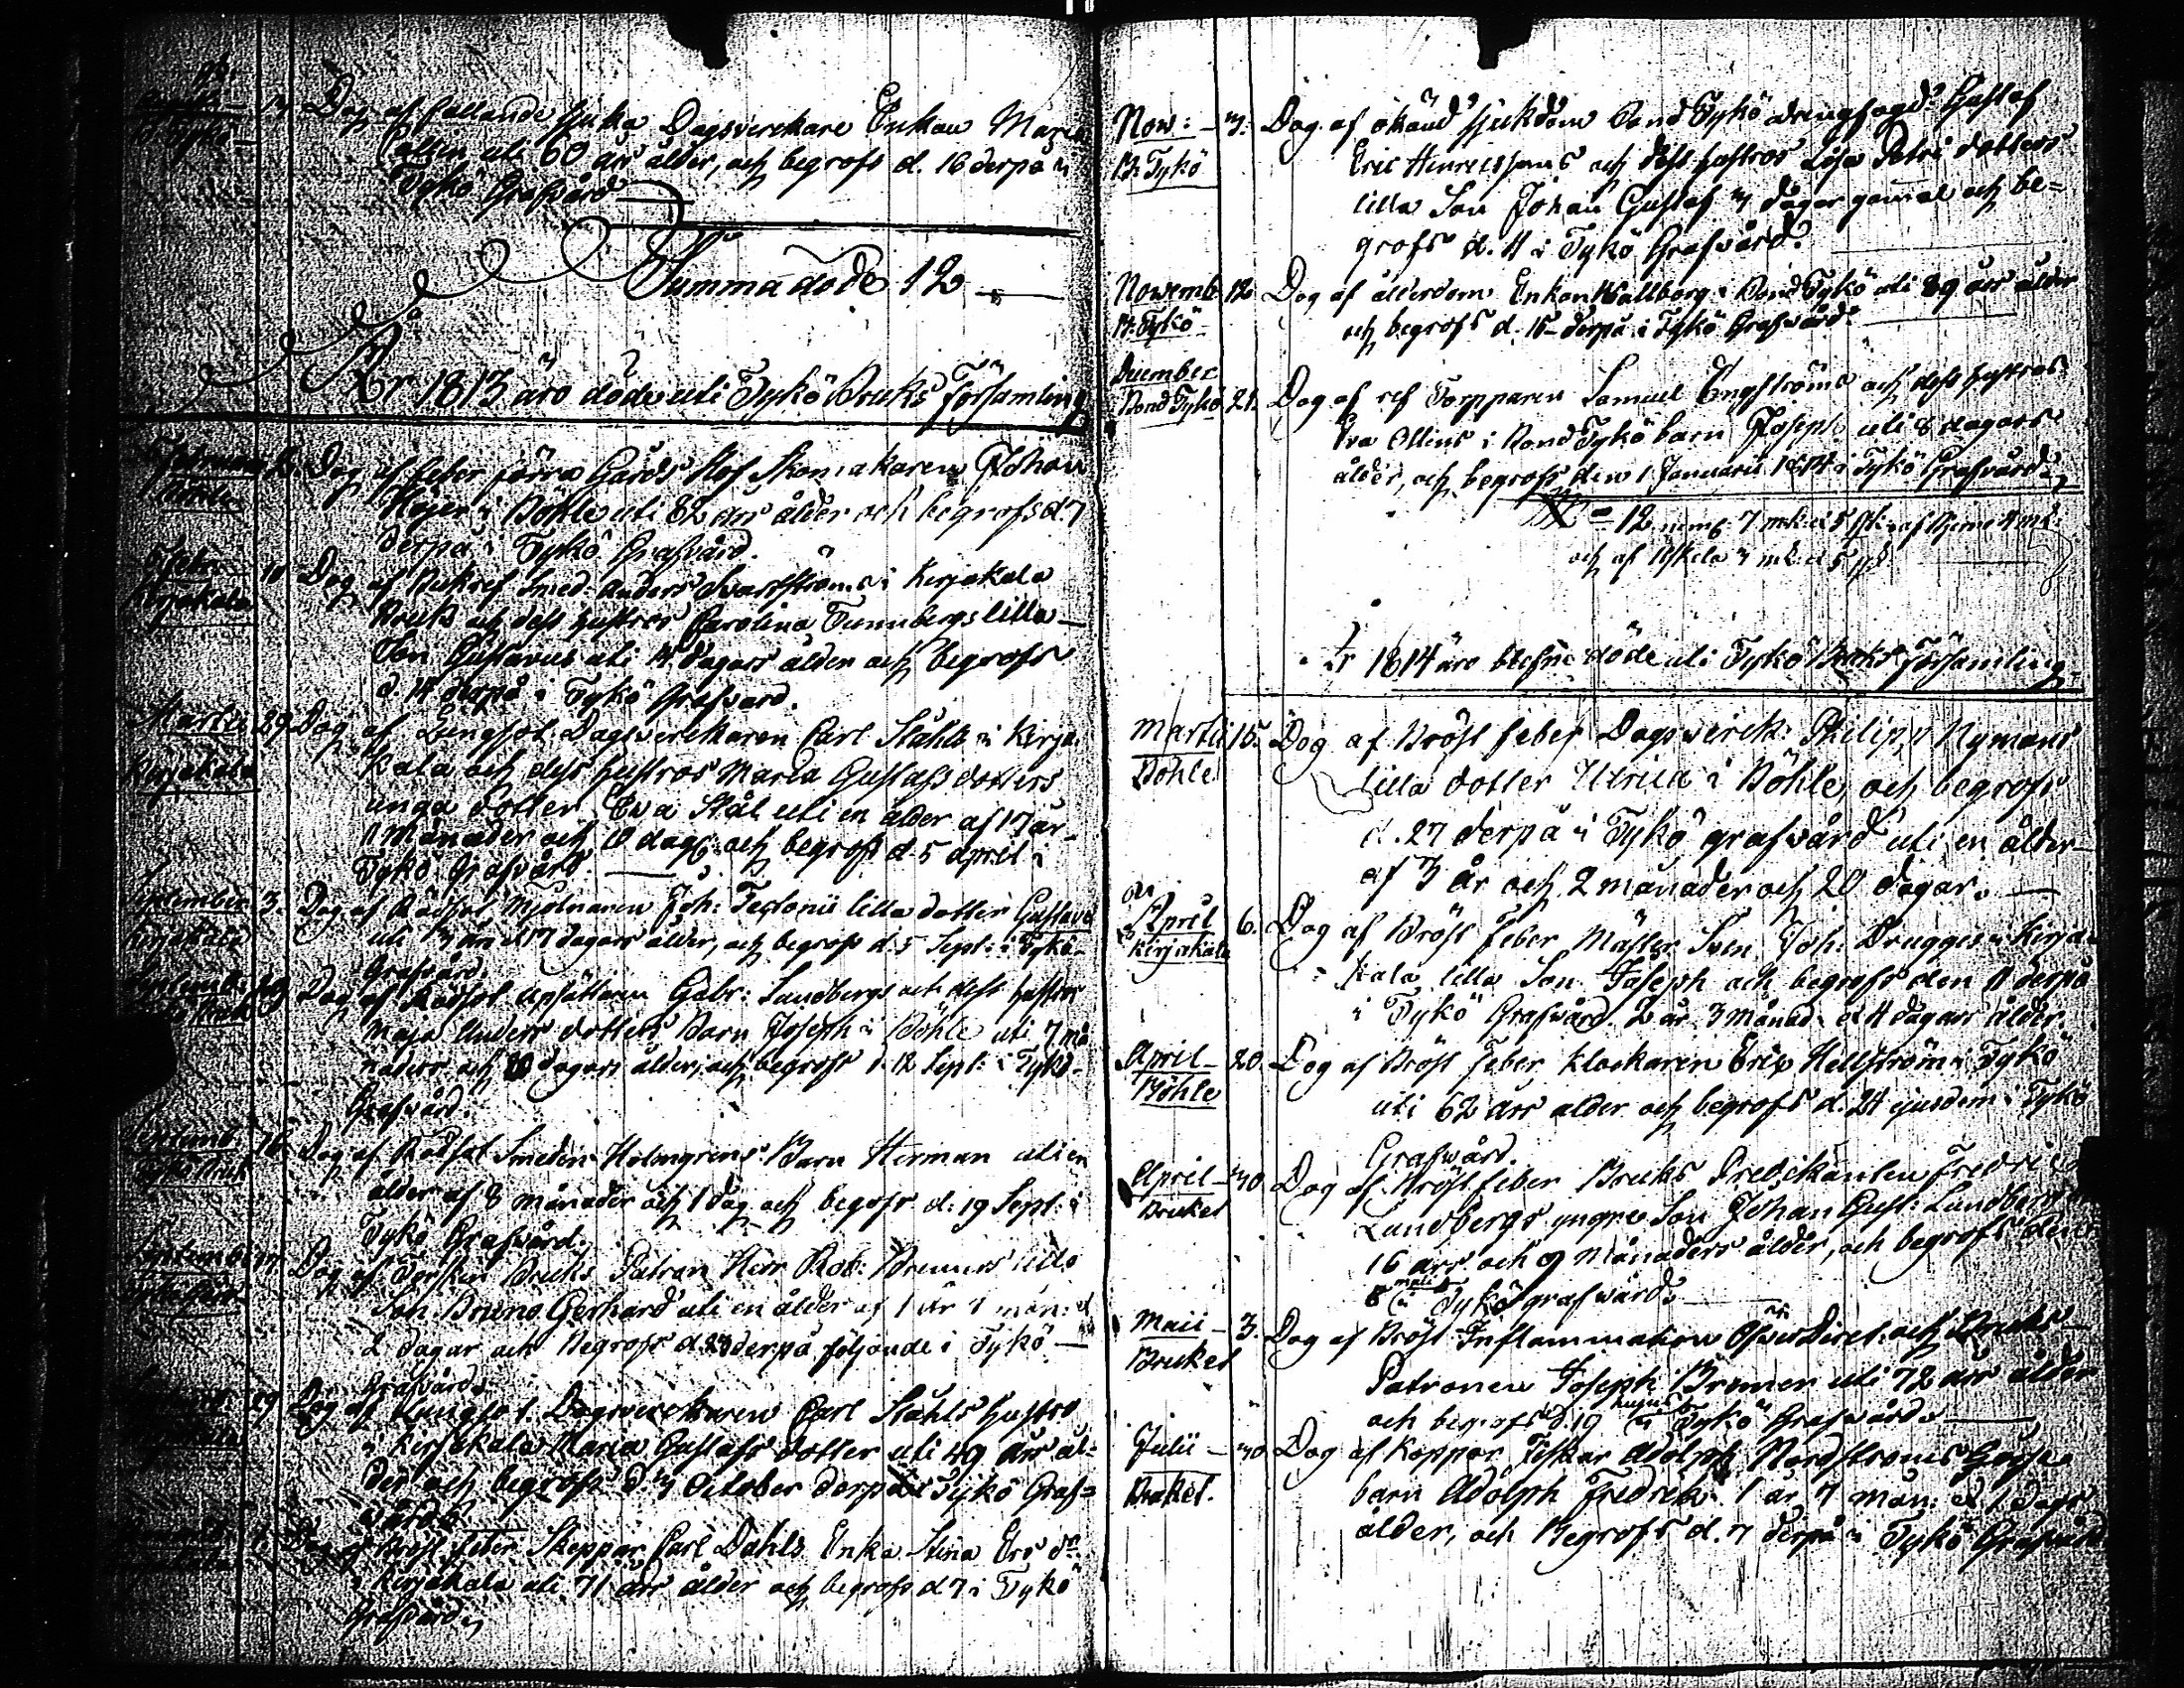 Dog af fallande sjuka Dagsverckare Enkan Maria
uti 60 års ålder, och begrofs d. 16 derpå i
Tykö Grafvård
Summa döde 12
År 1813 äro döde uti Tykö Bruks Församling
Dog af feber förra Gårds Hof Skomakaren Johan
Höijer i Böhle uti 82 års ålder och begrofs d. 7
derpå i Tykö Grafvård.
Febr: 10 Dog af Smed Anders Svartströms i Kirjakala
Kirjakala Bruk och dess hustrus Carolina Tunnbergs lilla
Son Gustavus uti 4 dagars ålder och begrofs
d. 14 derpå i Tykö Grafvård.
Martii 29 Dog af Lungsot Dagsverckaren Carl Ståhls i Kirja-
Kirjakala kala och dess hustrus Maria Gustafs dotters
unga dotter Eva Stål uti en ålder af 17 år
månader och 10 dag: och begrofs d. 5 April i
Tykö Grafvård.
September 3. Dog af Rödsot Mjölnaren Joh: lilla dotter Gustava
Kirjakala uti 3 år 17 dagars ålder, och begrofs d. 5 Sept: i Tykö
Grafvård.
Dog af Rödsot Upsättaren Gabr: Sundbergs och dess hustrus
Maja Anders dotters Barn Joseph i Böhle uti 7 må-
naders och 10 dagars ålder, och begrofs d. 12 Sept: i Tykö
Grafvård.
Septemb. 16 Dog af Rödsot Smeden Holmgrens Barn Herman uti en
Tykö Bruk ålder af 8 månader och 1 dag och begrofs d: 19 Sept: i
Tykö Grafvård.
Septemb: 17 Dog af Bruks Patron Herr Rob: Bremers lilla
Son Bruno Gerhard uti en ålder af 1 år 1 mån: et
2 dagar och Begrofs d. derpå följande i Tykö
Grafvård.
29 Dog af Lungsot. Dagsverckaren Carl Ståhls hustro
i Kirjakala Maria Gustafs dotter uti 49 års ål-
der och begrofs d. 3 October derpå i Tykö Graf-
vård.
Dog af Bröst feber Skeppar Carl Dahls Enka Stina Ers dr.
i Kirjakala uti 71 års ålder och begrofs d 7 i Tykö
Grafvård
Now: 3. Dog af okänd sjukdom Bond Tykö drengfogd: Gustaf
B: Tykö Eric Henricssons och dess hustros Lisa Petri dotters
lilla Son Johan Gustaf 3 dagar gamal och be-
grofs d. 11 i Tykö Grafvård.
Nowemb 12 Dog af ålderdom Enkan Wallborg i Bond Tykö uti 89 års ålder
B. Tykö och begrofs d. 15 derpå i Tykö Grafvård.
December
Bond Tykö 21. Dog af ref Torpparen Samuel Engströms och dess hustros
Eva Ollins i Bond Tykö barn Joseph uti 8 dagars
ålder, och begrofs den 1 Januarii 1814 i Tykö Grafvård.
och af
År 1814 äro blefne döde uti Tykö Bruks Församling
Martii 15. Dog af Bröst feber Dagsverck: Philipp Nymans
Böhle lilla dotter Ulrica i Böhle, och begrofs
d. 27 derpå i Tykö grafvård uti en ålder
af 3 år och 2 månader och 20 dagar.
April 6. Dog af Bröst feber Mäster Sven Joh: Drugges i Kirja-
Kirjakala kala lilla Son Joseph och begrofs den 11 derpå
i Tykö Grafvård. 2 år 3 månad. et 4 dagars ålder.
April 20. Dog af Bröst feber Klockaren Eric Hellström i Tykö
Böhle uti 62 års ålder och begrofs d. 24 ejusdem i Tykö
Grafvård.
April 30 Dog af Bröst feber Bruks Predikanten Fredric
Bruket Lundbergs yngre Son Johan Gust: Lundberg
16 års och 9 Månaders ålder, och begrofs den
8 maii i Tykö grafvård.
Maii 3. Dog af Bröst Inflammation Öfver Direct: och Bruks
Bruket Patronen Joseph Bremer uti 72 års ålder
och begrofs d. 19 hujus i Tykö Grafvård.
Julii 30 Dog af Koppor Fiskar Adolph Nordströms Gosse
Bruket. barn Adolph Fredrek 1 år 7 mån: et 1 dags
ålder, och Begrofs d. 7 derpå i Tykö Grafvård